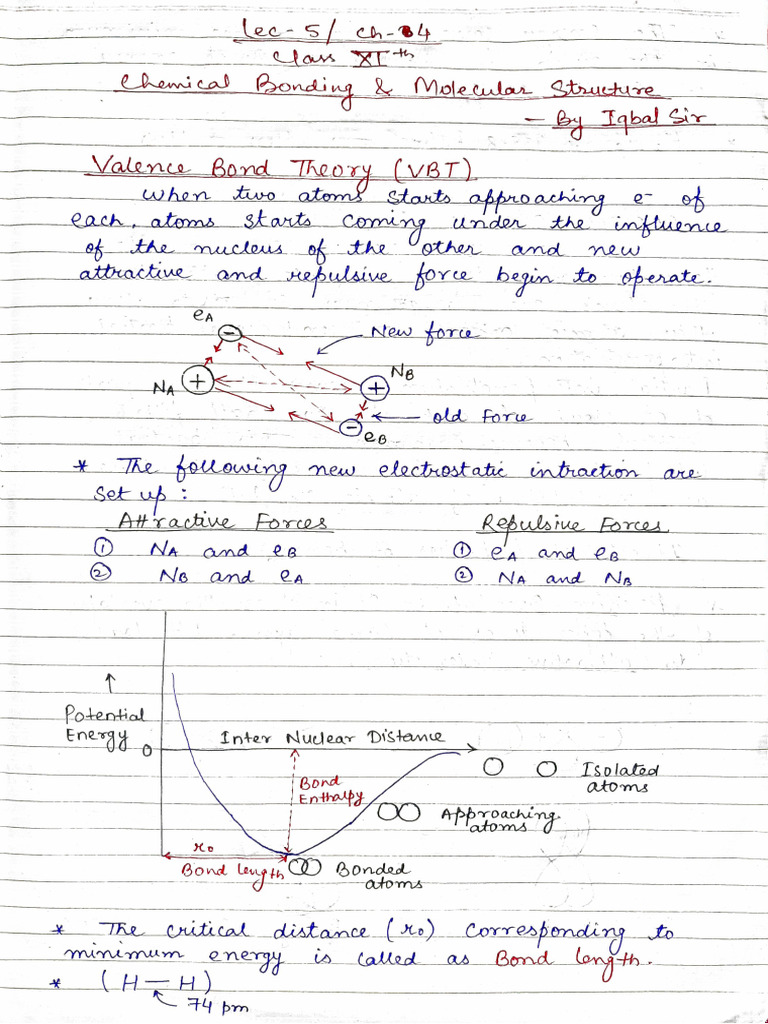 Lec-5/ Ch-4
Class XIth
Chemical Bonding & Molecular Structure
- By Iqbal Sir
Valence Bond Theory (VBT)
When two atoms starts approaching e- of
each, atoms starts coming under the influence
of the nucleus of the other and new
attractive and repulsive force begin to operate.
eA
−
New force
NA
+
NB
+
old Force
−
eB
* The following new electrostatic intraction are
set up :
Attractive Forces
Repulsive Forces
① NA and eB
① eA and eB
② NB and eA
② NA and NB
↑
Potential
Energy
0
Inter Nuclear Distance
Isolated
atoms
Bond
Enthalpy
Approaching
atoms
r0
Bond length
Bonded
atoms
* The critical distance (r0) corresponding to
minimum energy is called as Bond length.
* (H — H)
74 pm